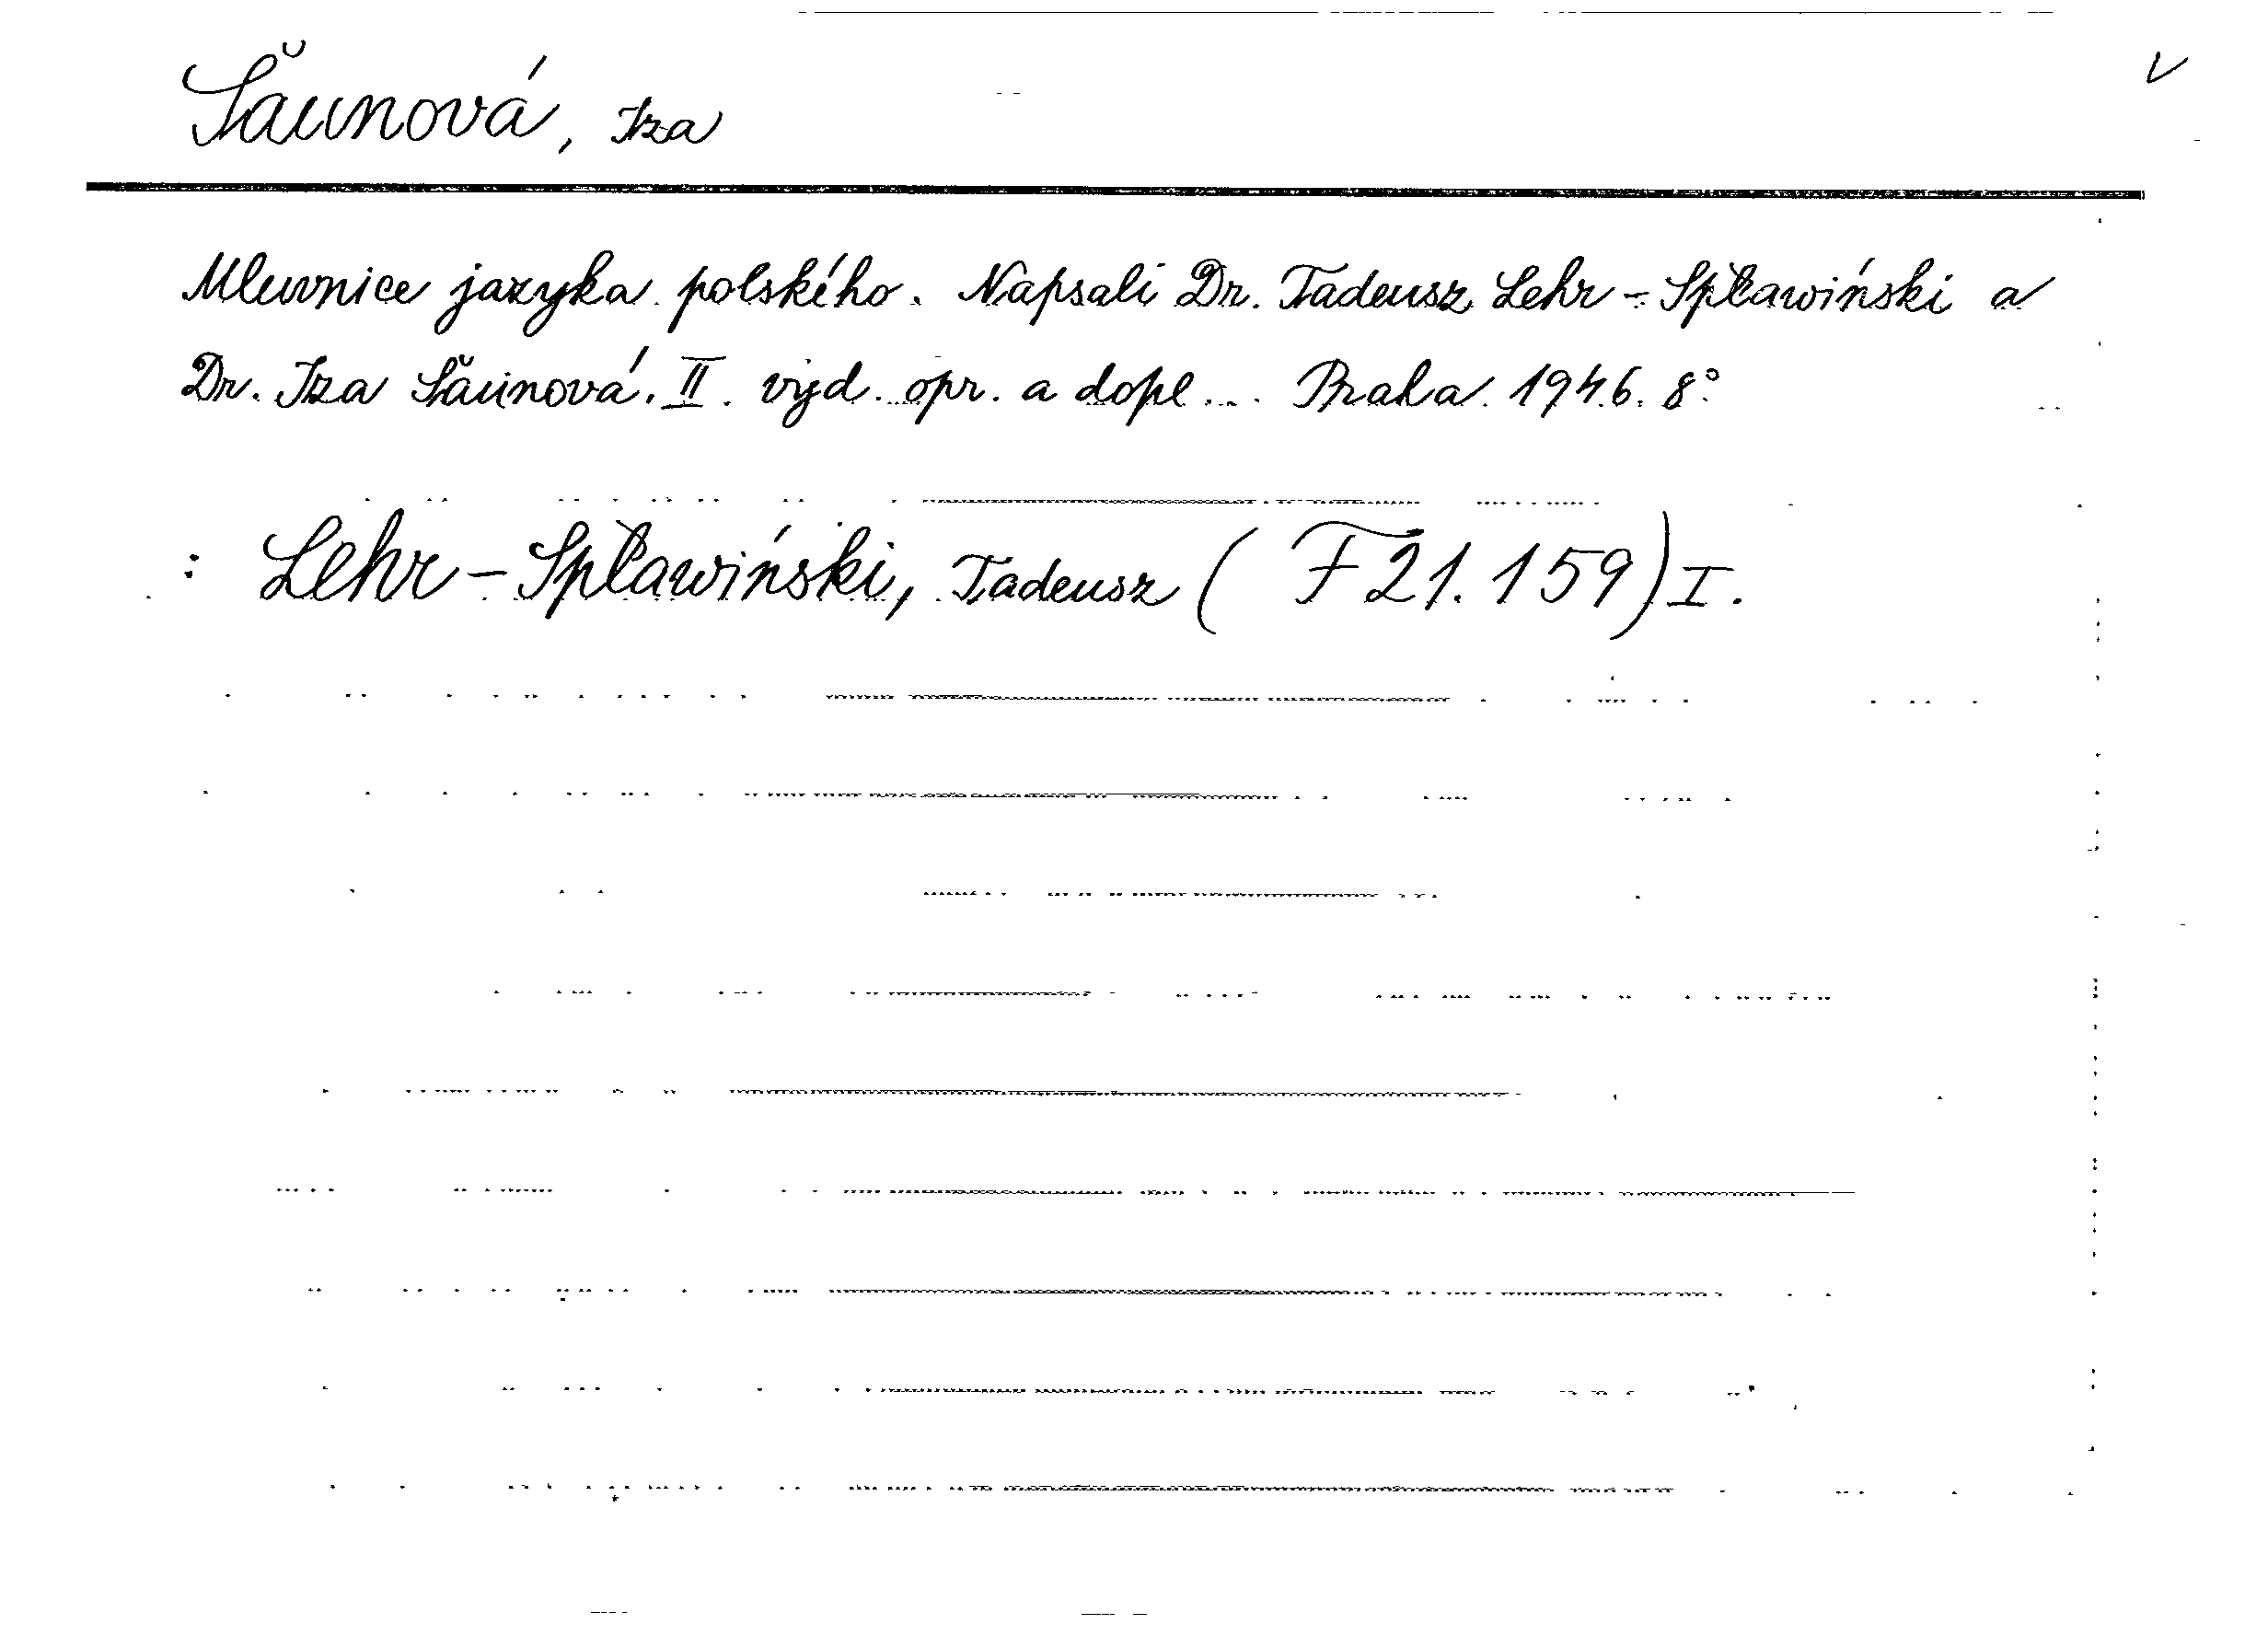 Šaunová, Iza
V
Mluvnice jazyka polského. Napsali Dr. Tadeusz Lehr-Spławiński a
Dr. Iza Šaunová. II. vyd. opr. a dopl... Praha 1946. 8°
: Lehr-Spławiński, Tadeusz (F21.159) I.